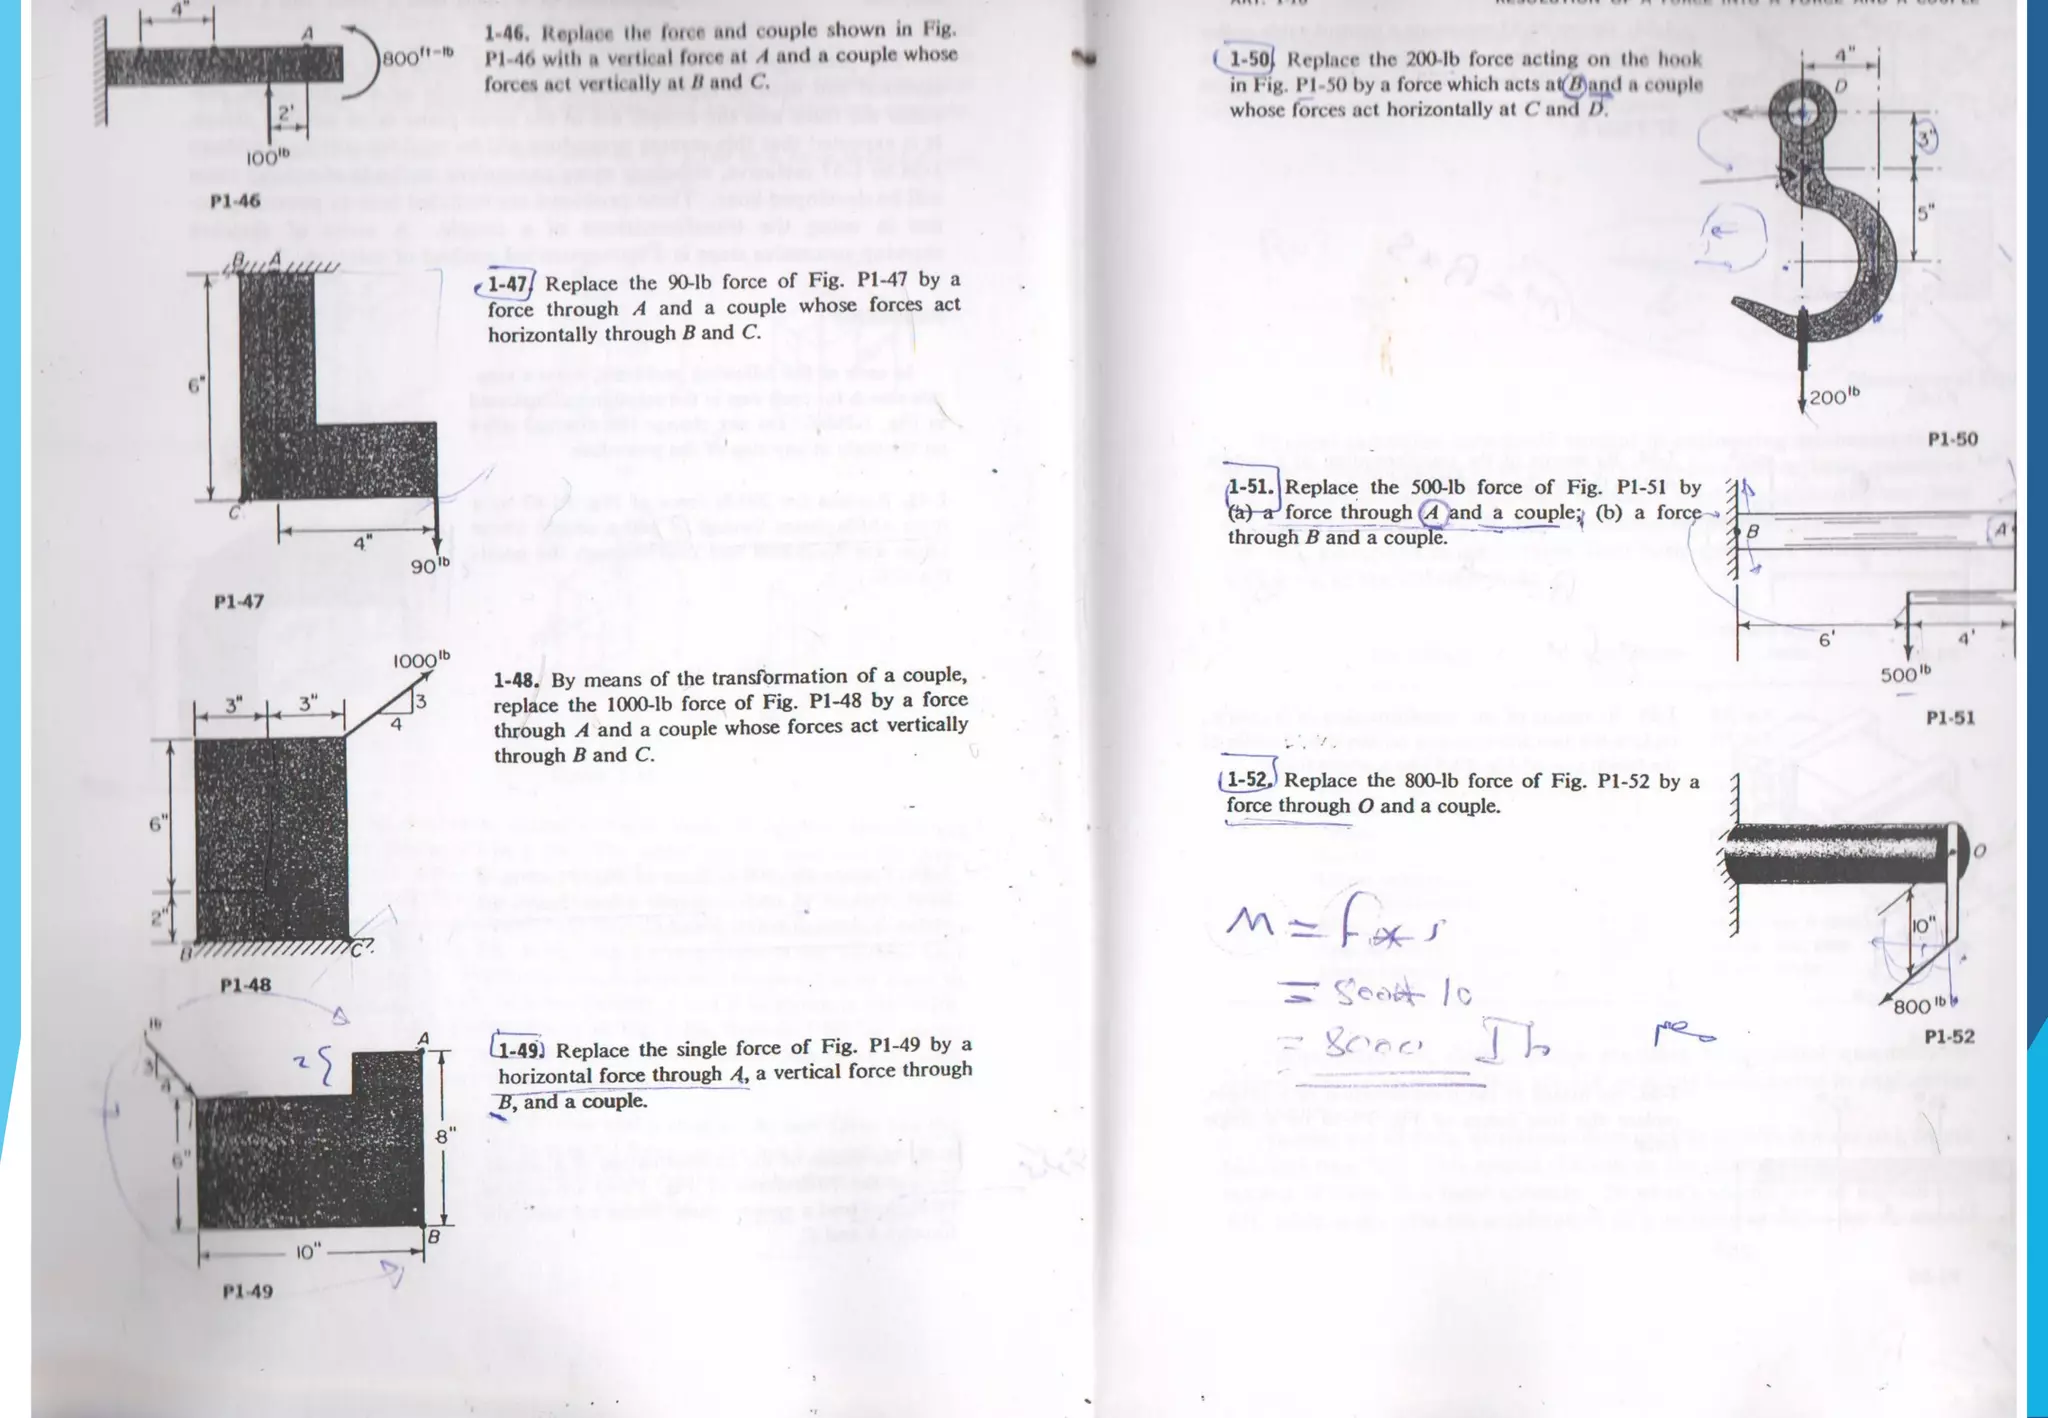 4"
A
800ft-lb
2'
100lb
P1-46
1-46. Replace the force and couple shown in Fig.
P1-46 with a vertical force at A and a couple whose
forces act vertically at B and C.
B A
6"
C
4"
90lb
P1-47
1-47. Replace the 90-lb force of Fig. P1-47 by a
force through A and a couple whose forces act
horizontally through B and C.
1000lb
3" 3"
3
4
6"
2"
B
C
P1-48
1-48. By means of the transformation of a couple,
replace the 1000-lb force of Fig. P1-48 by a force
through A and a couple whose forces act vertically
through B and C.
lb
3
4
2
A
6"
8"
10"
B
P1-49
1-49. Replace the single force of Fig. P1-49 by a
horizontal force through A, a vertical force through
B, and a couple.
1-50. Replace the 200-lb force acting on the hook
in Fig. P1-50 by a force which acts at B and a couple
whose forces act horizontally at C and D.
4"
D
3"
5"
200lb
P1-50
1-51. Replace the 500-lb force of Fig. P1-51 by
(a) a force through A and a couple; (b) a force
through B and a couple.
B
A
6'
4'
500lb
P1-51
1-52. Replace the 800-lb force of Fig. P1-52 by a
force through O and a couple.
O
10"
800lb
P1-52
= 8000